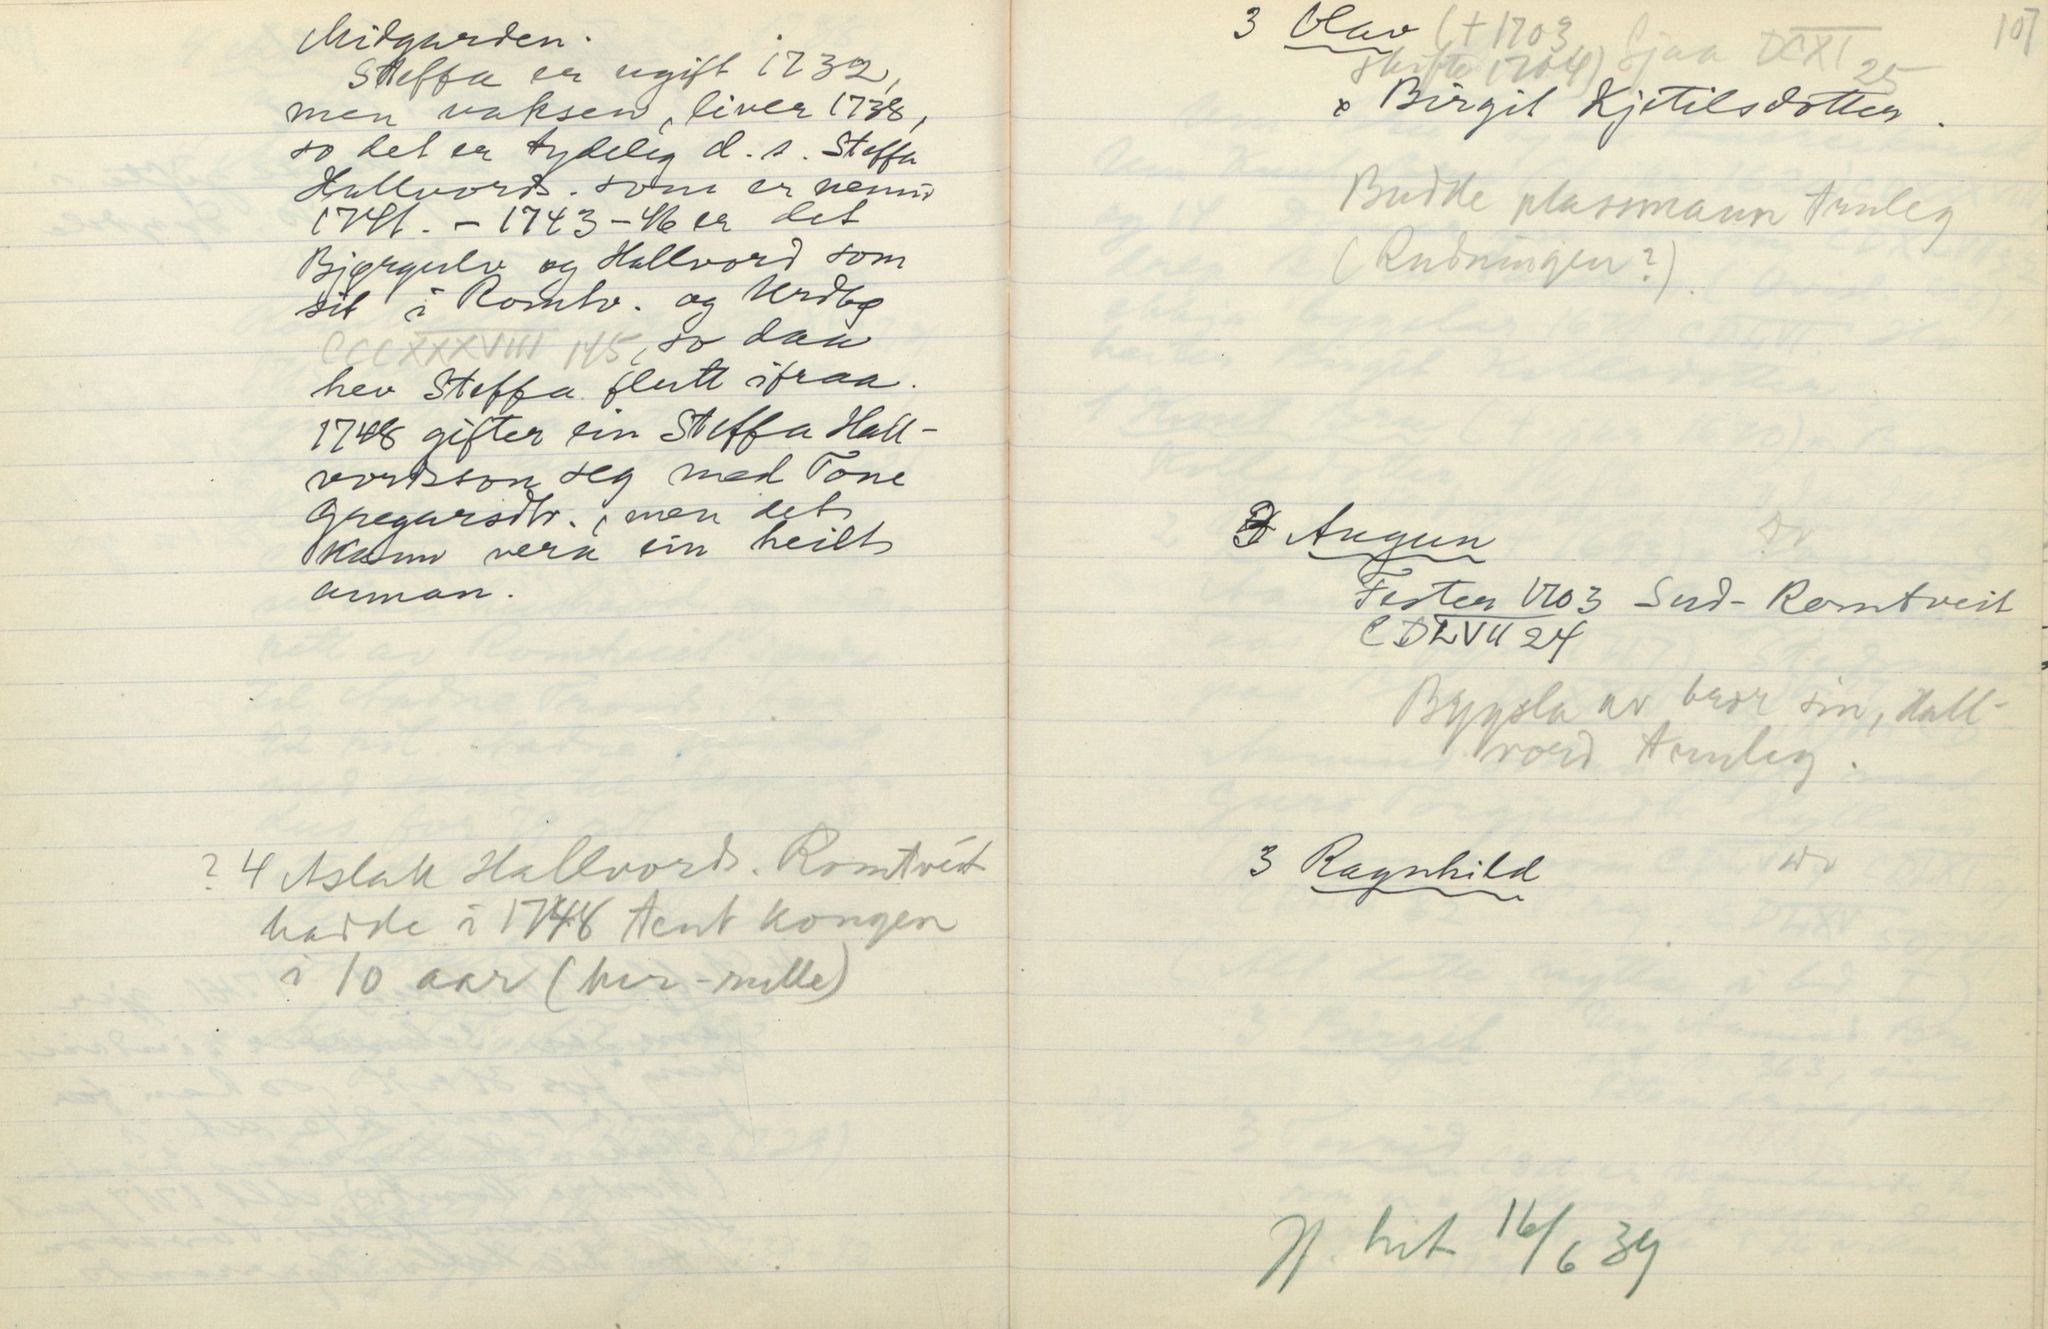 Midgarden.
Steffa er ugift 1732,
men vaksen, liver 1738,
so det er tydeleg d. s. Steffa
Hallvords. som er nemnd
1741. – 1743–46 er det
Bjørgulv og Hallvord som
sit i Romtv. og Urdbø
CCCXXXVIII 145, so daa
hev Steffa flutt ifraa.
1748 gifter ein Steffa Hall-
vordsson seg med Tone
Gregarsdtr., men det
kann vera ein heilt
annan.
? 4 Aslak Hallvords. Romtveit
hadde i 1748 tent kongen
i 10 aar (her-rulle)
107
3 Olav († 1703
skifte 1704) Sjaa DCXI 25
x Birgit Kjetilsdotter.
Budde plassmann Arnleg
(Rudningen?).
3 Augun
Fester 1703 Sud-Romtveit
CDLVII 24
Bygsla av bror sin, Hall-
vord Arnleg.
3 Ragnhild
H. hit 16/6 39